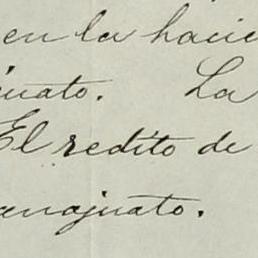 en la hacie
juato. La
El redito de
anajuato.